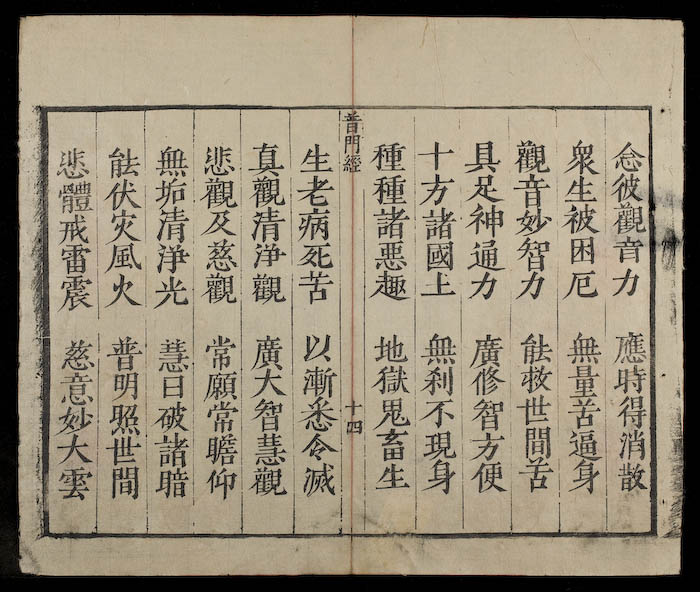 念彼觀音力 應時得消散
衆生被困厄 無量苦逼身
觀音妙智力 能救世間苦
具足神通力 廣修智方便
十方諸國土 無刹不現身
種種諸惡趣 地獄鬼畜生
普門經 十四
生老病死苦 以漸悉令滅
真觀清淨觀 廣大智慧觀
悲觀及慈觀 常願常瞻仰
無垢清淨光 慧日破諸暗
能伏灾風火 普明照世間
悲體戒雷震 慈意妙大雲